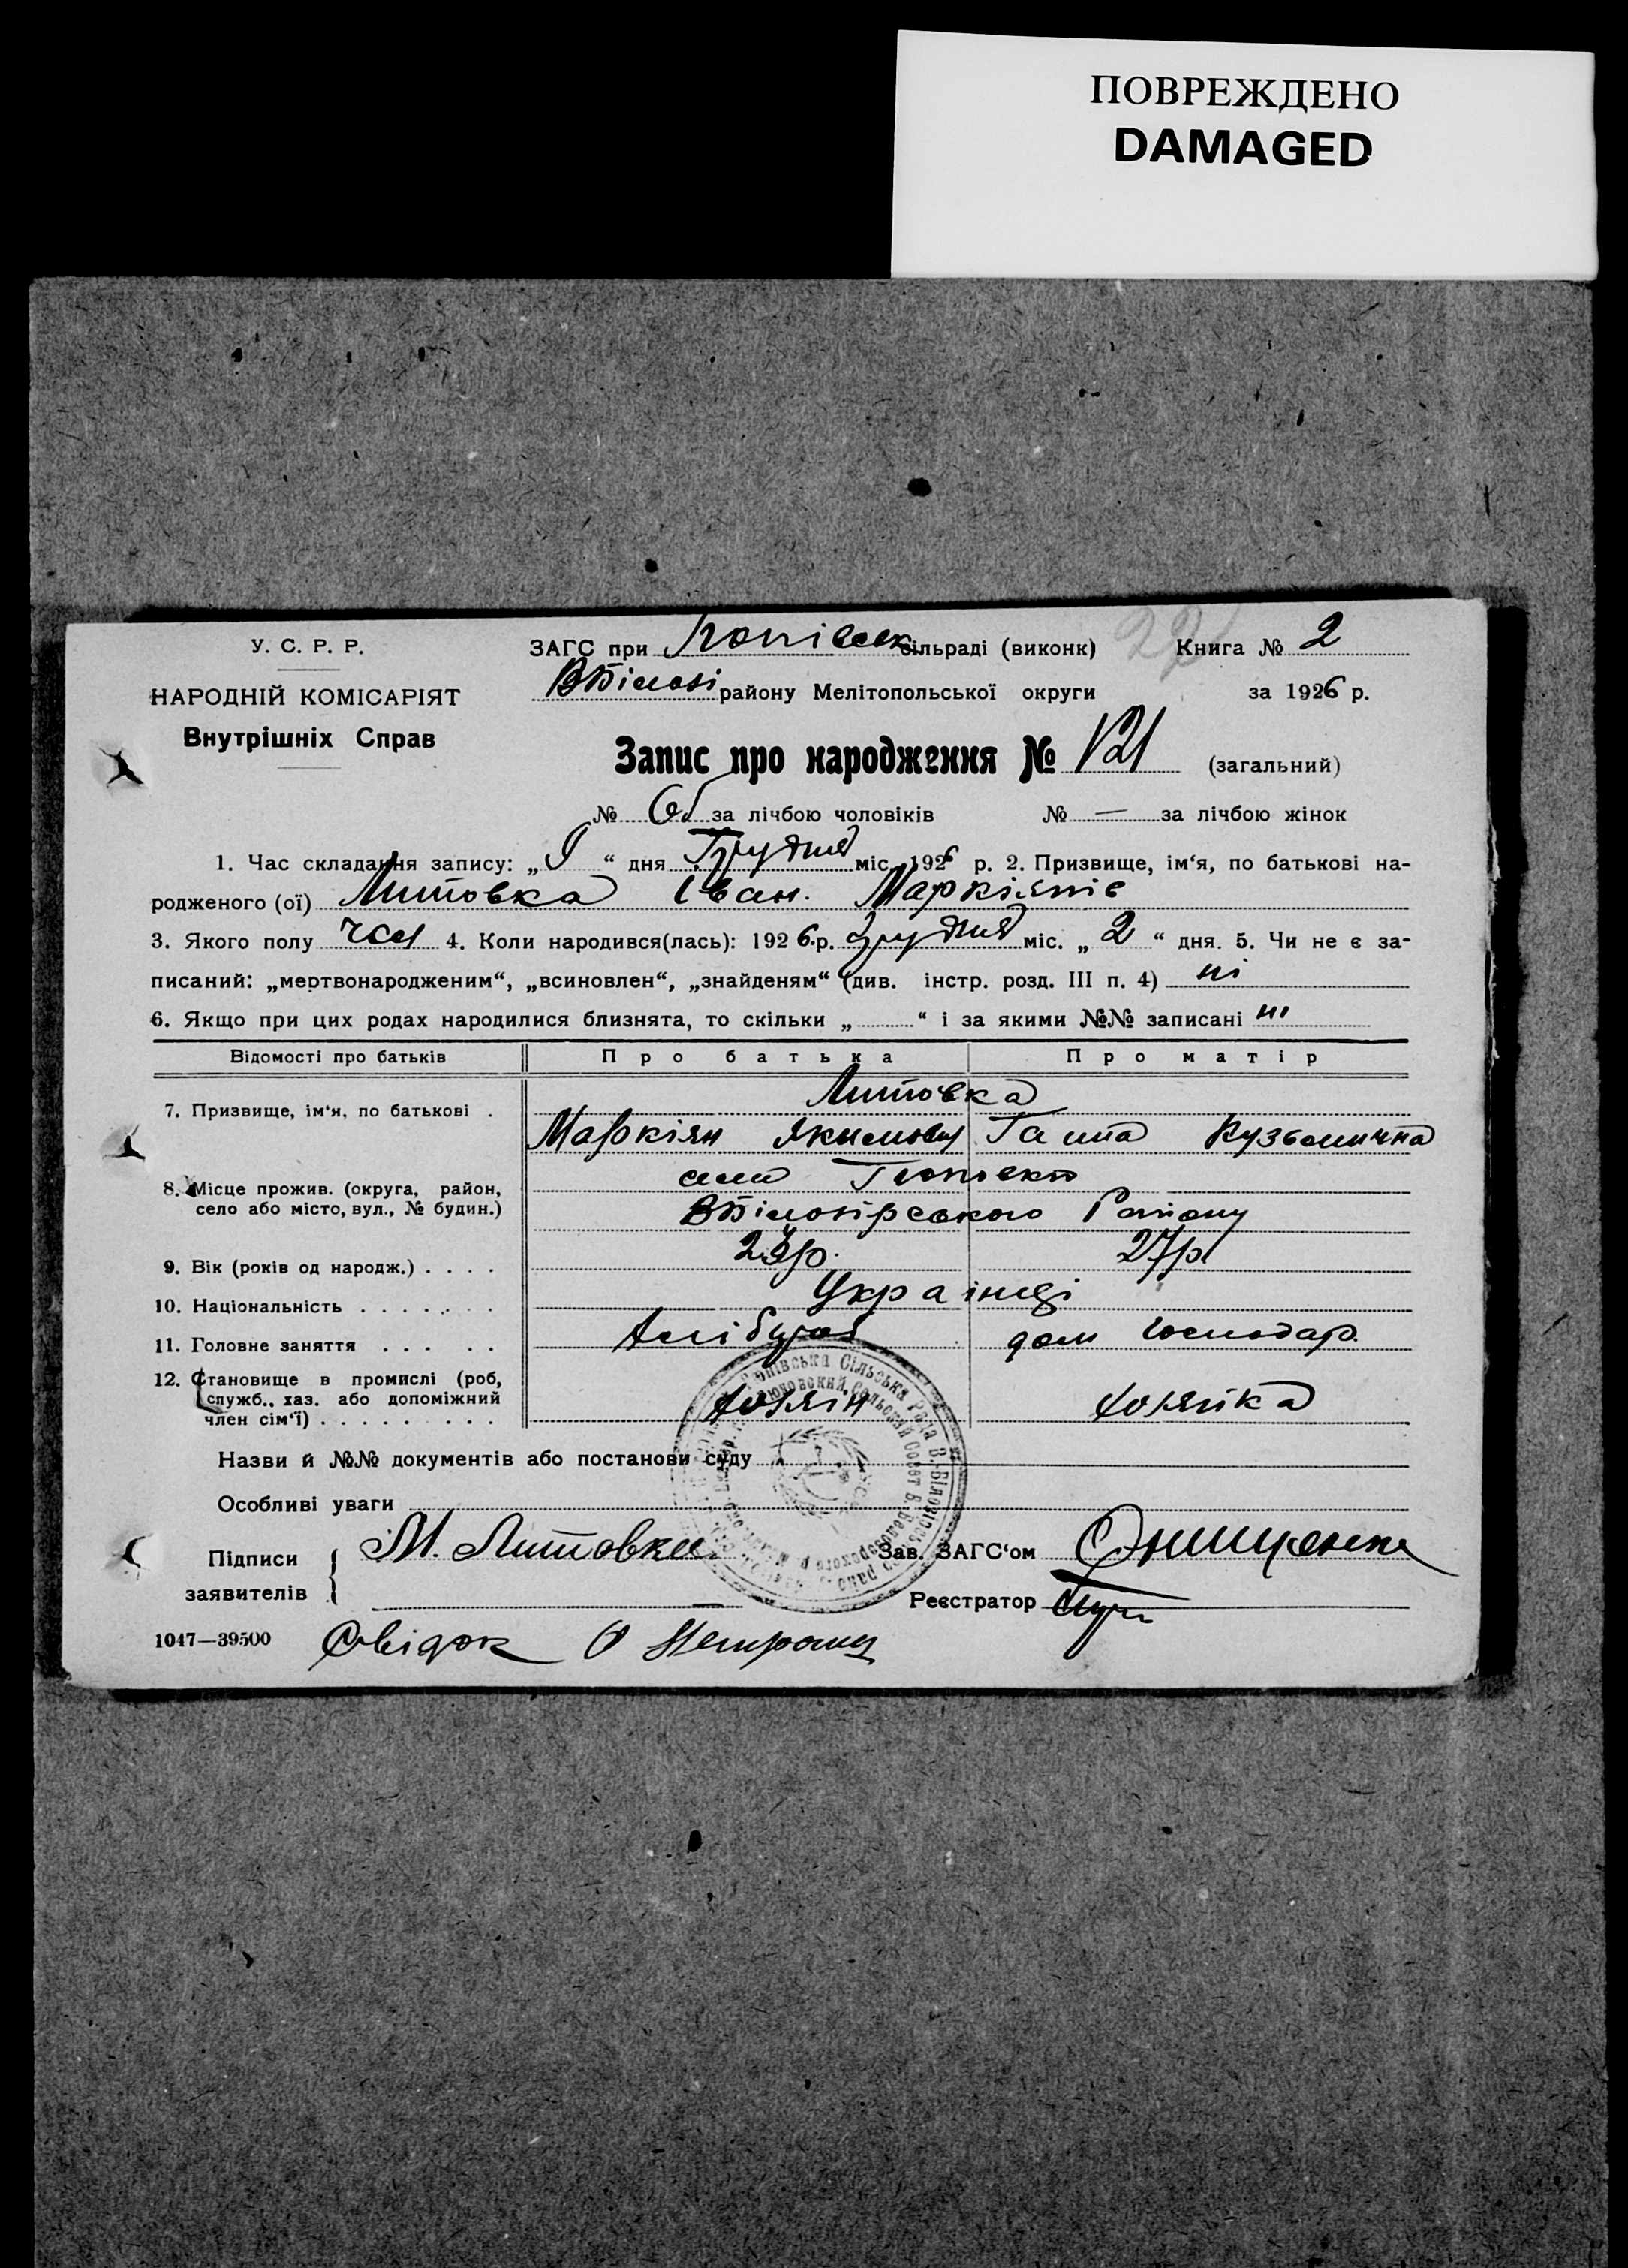 ПОВРЕЖДЕНО
DAMAGED
У. С. Р. Р.
НАРОДНІЙ КОМІСАРІЯТ
Внутрішніх Справ
ЗАГС при сільраді (виконк)
району Мелітопольської округи
Книга № 2
за 1926 р.
Запис про народження № 121 (загальний)
№ за лічбою чоловіків № — за лічбою жінок
1. Час складання запису: „ “ дня Грудня міс. 1926 р. 2. Призвище, ім‘я, по батькові на-
родженого (ої) Литовка Іван. Маркіянів
3. Якого полу чол 4. Коли народився(лась): 1926 р. Грудня міс. „ 2 “ дня. 5. Чи не є за-
писаний: „мертвонародженим“, „всиновлен“, „знайденям“ (див. інстр. розд. III п. 4) ні
6. Якщо при цих родах народилися близнята, то скільки „ “ і за якими №№ записані ні
Відомості про батьків Про батька Про матір
7. Призвище, ім‘я, по батькові . Литовка
Маркіян Якимович Ганна Кузьмична
8. Місце прожив. (округа, район,
село або місто, вул., № будин.)
село
ВБілозірського Району
9. Вік (років од народж.) . . . . 27р
10. Національність . . . . . . . Українці
11. Головне заняття . . . . . Хлібороб дом господар.
12. Становище в промислі (роб,
служб., хаз. або допоміжний
член сім‘ї) . . . . . . . . . Хозяін Хозяйка
Назви й №№ документів або постанови суду
Особливі уваги
Підписи
заявителів
М. Литовка
Зав. ЗАГС‘ом Онищенко
Реєстратор
1047—39500 Свідок